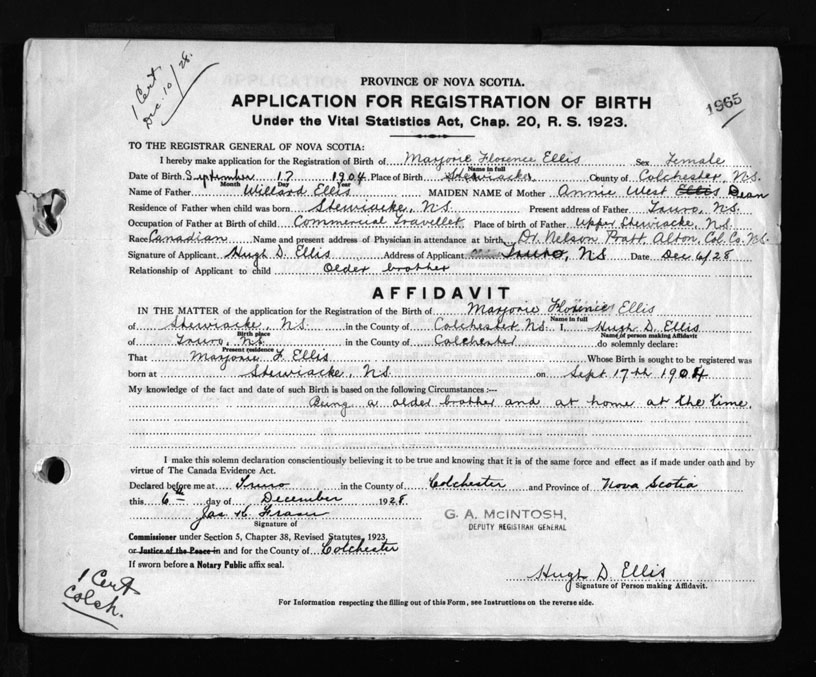 1 Cert
Dec 10/28.
1965
PROVINCE OF NOVA SCOTIA.
APPLICATION FOR REGISTRATION OF BIRTH
Under the Vital Statistics Act, Chap. 20, R. S. 1923.
TO THE REGISTRAR GENERAL OF NOVA SCOTIA:
I hereby make application for the Registration of Birth of Marjorie Florence Ellis Sex Female
Name in full
Date of Birth September 17 1904 Place of Birth Stewiacke County of Colchester, N.S.
Month Day Year
Name of Father Willard Ellis MAIDEN NAME of Mother Annie West Ellis Dean
Residence of Father when child was born Stewiacke, N.S. Present address of Father Truro, N.S.
Occupation of Father at Birth of child Commercial Traveller Place of birth of Father Upper Stewiacke, N.S.
Race Canadian Name and present address of Physician in attendance at birth Dr. Nelson Pratt, Alton, Col. Co. N.S.
Signature of Applicant Hugh D. Ellis Address of Applicant Truro, NS Date Dec 6/28
Relationship of Applicant to child Older brother
AFFIDAVIT
IN THE MATTER of the application for the Registration of the Birth of Marjorie Florence Ellis
Name in full
of Stewiacke, N.S. in the County of Colchester N.S. I, Hugh D. Ellis
Birth place Name of person making Affidavit
of Truro, N.S. in the County of Colchester do solemnly declare:
Present residence
That Marjorie F Ellis Whose Birth is sought to be registered was
born at Stewiacke, N.S. on Sept. 17th 1904
My knowledge of the fact and date of such Birth is based on the following Circumstances :—
Being a older brother and at home at the time.
I make this solemn declaration conscientiously believing it to be true and knowing that it is of the same force and effect as if made under oath and by
virtue of The Canada Evidence Act.
Declared before me at Truro in the County of Colchester and Province of Nova Scotia
this 6th day of December 1928
Jas. K. Fraser
Signature of
G. A. McINTOSH,
DEPUTY REGISTRAR GENERAL
Commissioner under Section 5, Chapter 38, Revised Statutes, 1923,
or Justice of the Peace in and for the County of Colchester
If sworn before a Notary Public affix seal.
1 Cert
Colch.
Hugh D. Ellis
Signature of Person making Affidavit.
For Information respecting the filling out of this Form, see Instructions on the reverse side.